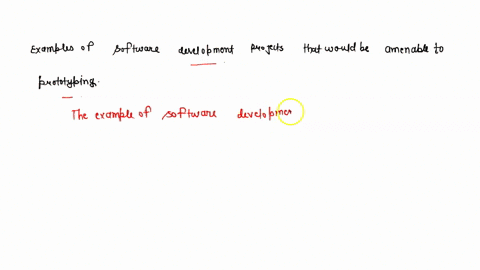 Examples of software development projects that would be amenable to
prototyping.
The example of software developmen